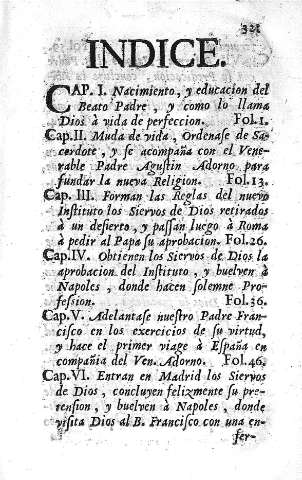 321
INDICE.
CAP. I. Nacimiento, y educacion del
Beato Padre, y como lo llama
Dios à vida de perfeccion. Fol.1.
Cap.II. Muda de vida, Ordenase de Sa-
cerdote, y se acompaña con el Vene-
rable Padre Agustin Adorno para
fundar la nueva Religion. Fol.13.
Cap. III. Forman las Reglas del nuevo
Instituto los Siervos de Dios retirados
à un desierto, y passan luego à Roma
à pedir al Papa su aprobacion. Fol.26.
Cap.IV. Obtienen los Siervos de Dios la
aprobacion del Instituto, y buelven à
Napoles, donde hacen solemne Pro-
fession. Fol.36.
Cap.V. Adelantase nuestro Padre Fran-
cisco en los exercicios de su virtud,
y hace el primer viage à España en
compañia del Ven. Adorno. Fol.46.
Cap.VI. Entran en Madrid los Siervos
de Dios, concluyen felizmente su pre-
tension, y buelven à Napoles, donde
visita Dios al B. Francisco con una en-
fer-